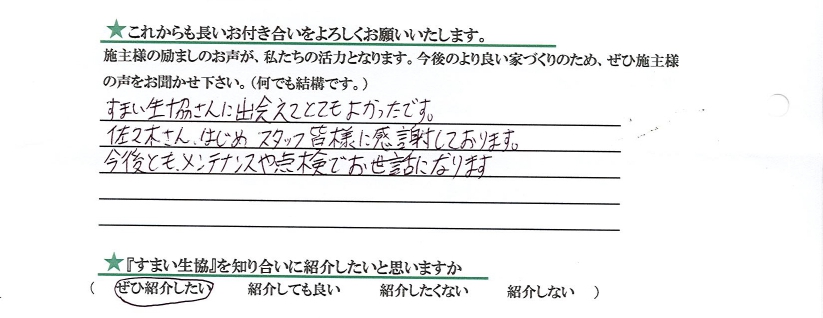 ★これからも長いお付き合いをよろしくお願いいたします。
施主様の励ましのお声が、私たちの活力となります。今後のより良い家づくりのため、ぜひ施主様
の声をお聞かせ下さい。(何でも結構です。)
すまい生協さんに出会えてとてもよかったです。
佐々木さん、はじめ スタッフ皆様に感謝しております。
今後とも、メンテナンスや点検でお世話になります
★『すまい生協』を知り合いに紹介したいと思いますか
( ぜひ紹介したい 紹介しても良い 紹介したくない 紹介しない )